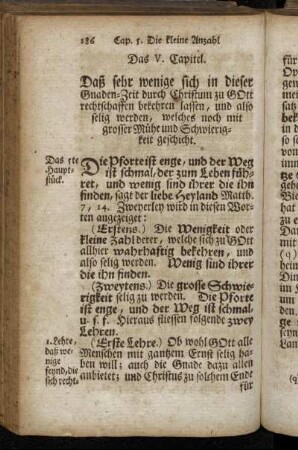 186 Cap. 5. Die kleine Anzahl
Das V. Capitel.
Daß sehr wenige sich in dieser
Gnaden-Zeit durch Christum zu GOtt
rechtschaffen bekehren lassen, und also
selig werden, welches noch mit
grosser Mühe und Schwierig-
keit geschicht.
Das 1te
Haupt-
stück.
Die Pforte ist enge, und der Weg
ist schmal, der zum Leben füh-
ret, und wenig sind ihrer die ihn
finden, sagt der liebe Heyland Matth.
7, 14. Zweyerley wird in diesen Wor-
ten angezeiget:
(Erstens.) Die Wenigkeit oder
kleine Zahl derer, welche sich zu GOtt
allhier wahrhaftig bekehren, und
also selig werden. Wenig sind ihrer
die ihn finden.
(Zweytens.) Die grosse Schwie-
rigkeit selig zu werden. Die Pforte
ist enge, und der Weg ist schmal,
u. s. f. Hieraus fliessen folgende zwey
Lehren.
1. Lehre,
daß we-
nige
seynd, die
sich recht-
(Erste Lehre.) Ob wohl GOtt alle
Menschen mit gantzem Ernst selig ha-
ben will; auch die Gnade dazu allen
anbietet; und Christus zu solchem Ende
für